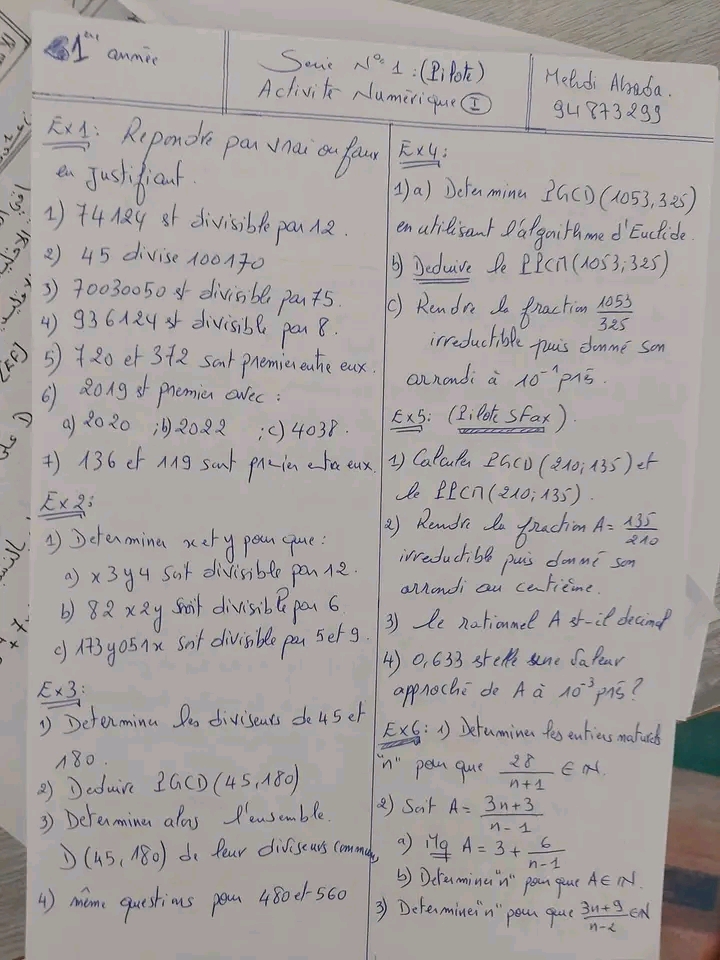 1ère année
Serie N° 1 : (Pilote)
Activité Numérique I
Mehdi Abada.
94873299
Ex1: Repondre par vrai ou faux
en justifiant.
1) 74124 st divisible par 12.
2) 45 divise 100170
3) 70030050 st divisible par 75.
4) 936124 st divisible par 8.
5) 720 et 372 sont premier entre eux.
6) 2019 st premier avec :
a) 2020 ; b) 2022 ; c) 4038.
7) 136 et 119 sont premier entre eux.
Ex2:
1) Determiner x et y pour que :
a) x3y4 soit divisible par 12.
b) 82x2y soit divisible par 6
c) 173y051x soit divisible par 5 et 9.
Ex3:
1) Determiner les diviseurs de 45 et
180.
2) Deduire PGCD(45,180)
3) Determiner alors l'ensemble.
D(45,180) de leur diviseurs communs
4) même questions pour 480 et 560
Ex4:
1) a) Determiner PGCD(1053,325)
en utilisant l'algorithme d'Euclide.
b) Deduire le PPCM(1053;325)
c) Rendre la fraction 1053/325
irreductible puis donné son
arrondi à 10⁻¹ près.
Ex5: (Pilote Sfax).
1) Calculer PGCD(210;135) et
le PPCM(210;135).
2) Rendre la fraction A = 135/210
irreductible puis donné son
arrondi au centième.
3) le rationnel A st-il decimal
4) 0,633 st elle une Valeur
approché de A à 10⁻³ près?
Ex6: 1) Determiner les entiers naturels
"n" pour que 28/(n+1) ∈ ℕ.
2) Soit A = (3n+3)/(n-1)
a) Mq A = 3 + 6/(n-1)
b) Determiner "n" pour que A ∈ ℕ.
3) Determiner "n" pour que (3n+9)/(n-2) ∈ ℕ